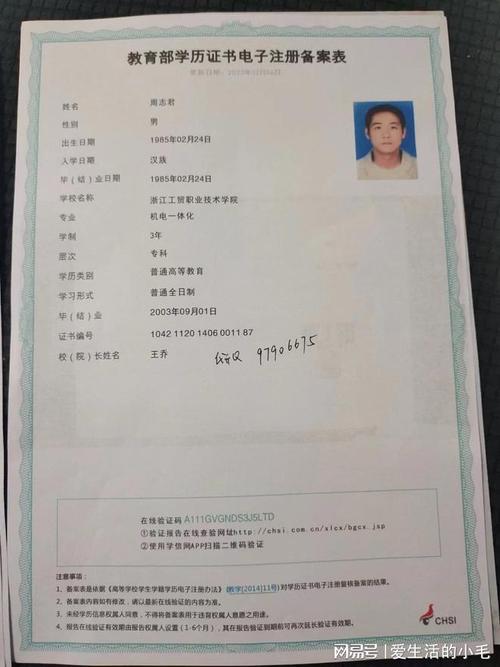 教育部学历证书电子注册备案表
姓名 周志君
性别 男
出生日期 1985年02月24日
入学日期 汉族
毕（结）业日期 1985年02月24日
学校名称 浙江工贸职业技术学院
专业 机电一体化
学制 3年
层次 专科
学历类别 普通高等教育
学习形式 普通全日制
毕（结）业 2003年09月01日
证书编号 1042 1120 1406 0011 87
校（院）长姓名 王乔
Q 97906675
在线验证码 A111GVGNDS3J5LTD
①验证报告在线查验网址http://chsi.com.cn/xlcx/bgcx.jsp
②使用学信网APP扫描二维码验证
注意事项：
1、备案表是依据《高等学校学生学籍学历电子注册办法》(教学[2014]11号)对学历证书电子注册复核备案的结果。
2、备案表内容如有修改，请以最新在线验证的内容为准。
3、未经学历信息权属人同意，不得将备案表用于违背权属人意愿之用途。
4、报告在线验证有效期由报告权属人设置（1-6个月），其在报告验证到期前可再次延长验证有效期。
CHSI
网易号 | 爱生活的小毛